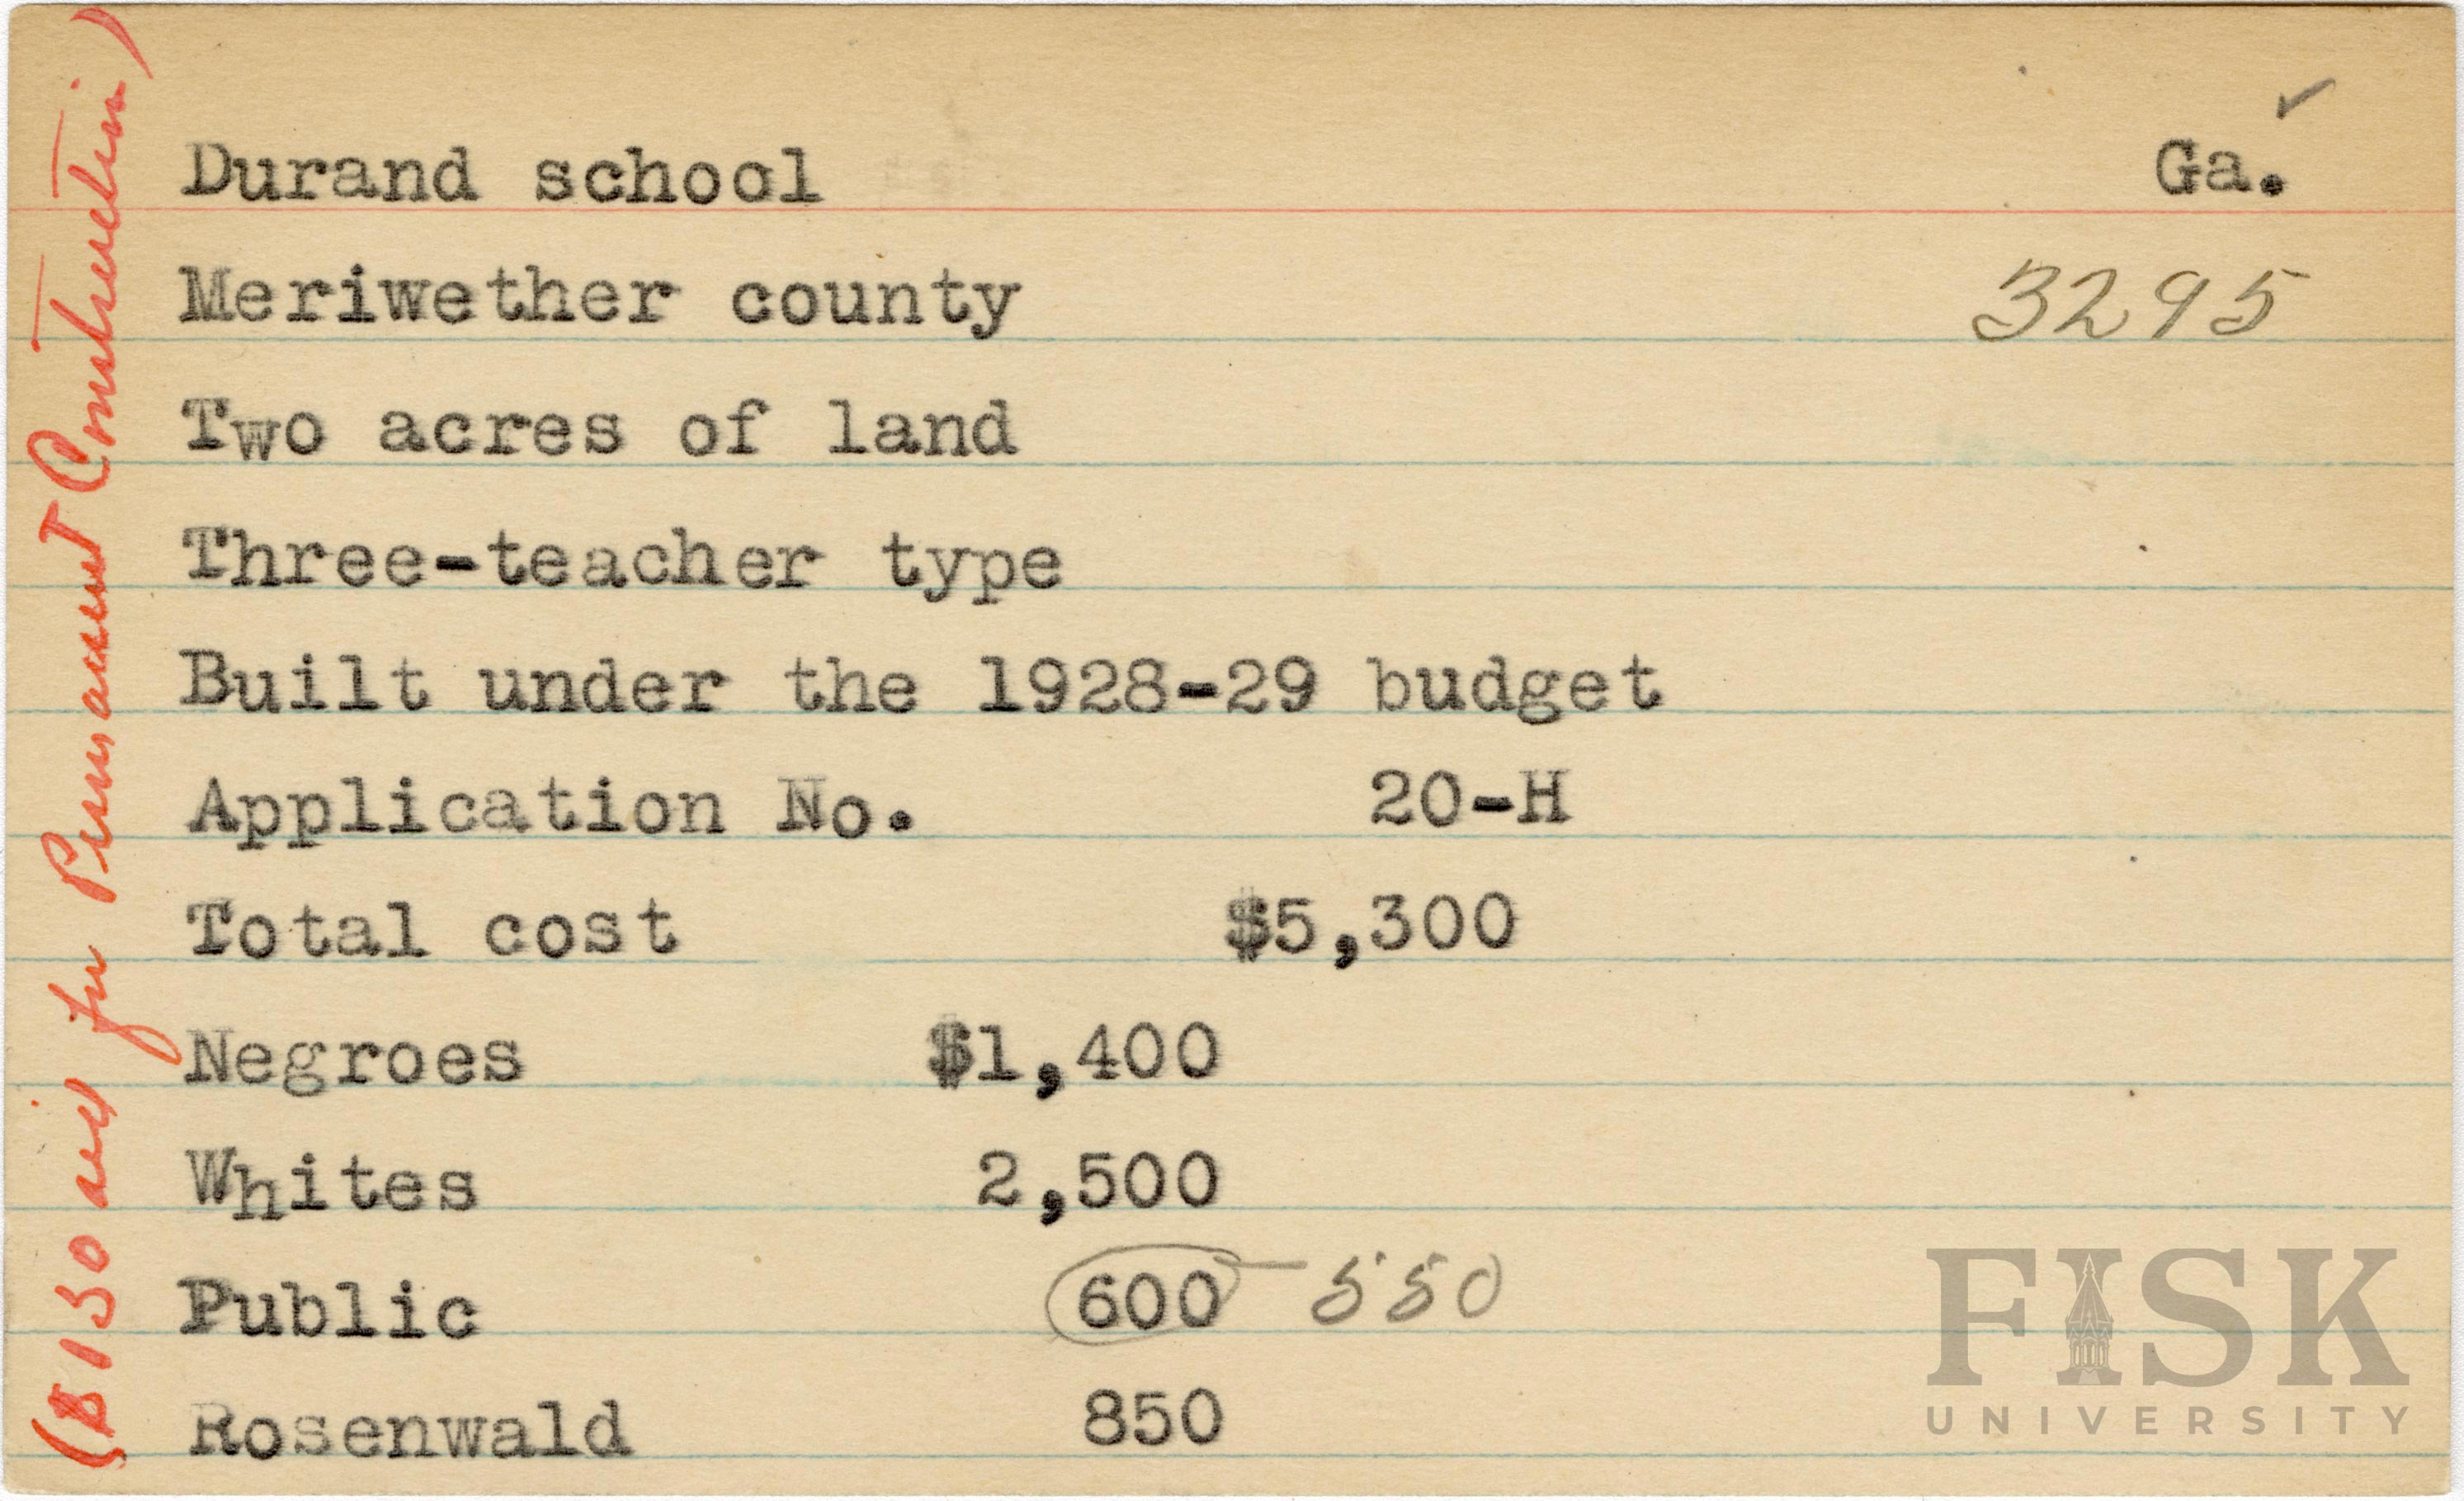 Durand school Ga.
Meriwether county 3295
Two acres of land
Three-teacher type
Built under the 1928-29 budget
Application No. 20-H
Total cost $5,300
Negroes $1,400
Whites 2,500
Public 600 - 550
Rosenwald 850
($150 aid for Permanent Construction)
FISK
UNIVERSITY